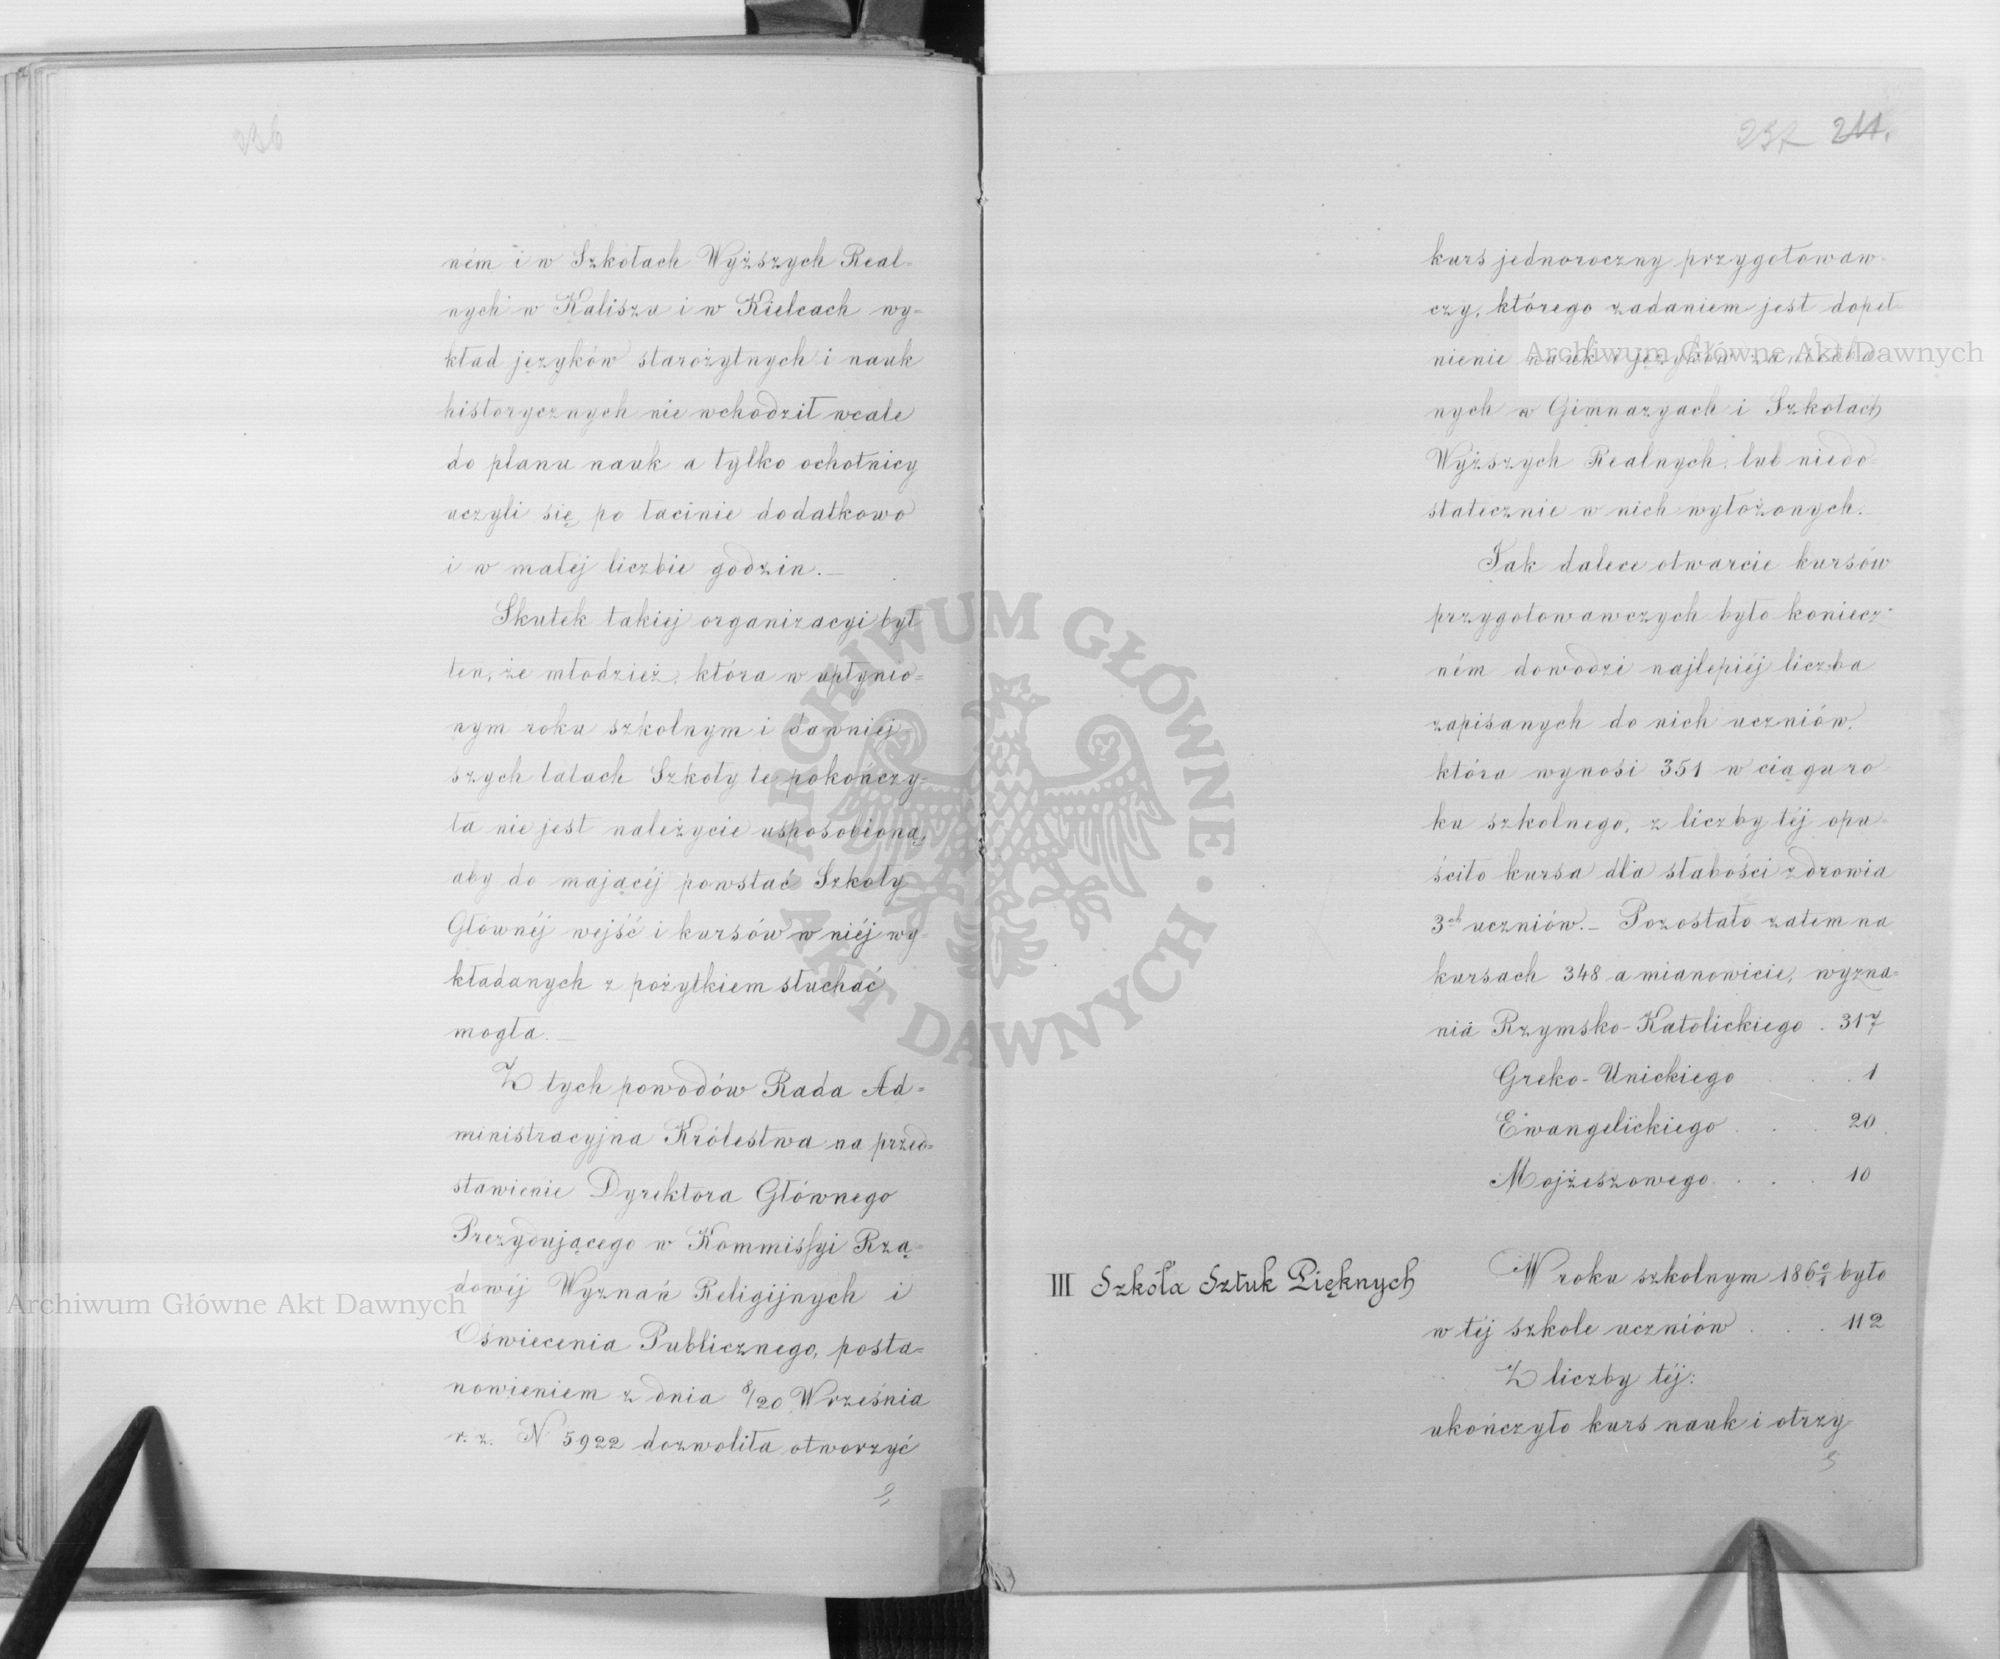 236
ném i w Szkołach Wyższych Real-
nych w Kaliszu i w Kielcach wy-
kład języków starożytnych i nauk
historycznych nie wchodził wcale
do planu nauk a tylko ochotnicy
uczyli się po łacinie dodatkowo
i w małéj liczbie godzin.—
Skutek takiej organizacyi był
ten, że młodzież, która w upłynio-
nym roku szkolnym i dawniej-
szych latach Szkoły te pokończy-
ła nie jest należycie usposobioną,
aby do mającéj powstać Szkoły
Głównéj wejść i kursów w niéj wy-
kładanych z pożytkiem słuchać
mogła.—
Z tych powodów Rada Ad-
ministracyjna Królestwa na przed-
stawienie Dyrektora Głównego
Prezydującego w Kommissyi Rzą-
dowéj Wyznań Religijnych i
Oświecenia Publicznego, posta-
nowieniem z dnia 8/20 Września
r. z. N 5922 dozwoliła otworzyć
237 211.
kurs jednoroczny przygotowaw-
czy, którego zadaniem jest dopeł-
nienie nauk i języków
nych w Gimnazyach i Szkołach
Wyższych Realnych, lub niedo-
statecznie w nich wyłożonych.
Jak dalece otwarcie kursów
przygotowawczych było koniecz-
ném dowodzi najlepiéj liczba
zapisanych do nich uczniów,
która wynosi 351 w ciągu ro-
ku szkolnego, z liczby téj opu-
ściło kursa dla słabości zdrowia
3ch uczniów.— Pozostało zatem na
kursach 348 a mianowicie, wyzna-
nia Rzymsko-Katolickiego . 317
Greko-Unickiego . . . 1
Ewangelickiego . . . 20
Mojżeszowego . . . 10
III Szkoła Sztuk Pięknych
W roku szkolnym 1860/1 było
w téj szkole uczniów . . . 112
Z liczby téj:
ukończyło kurs nauk i otrzy-
Archiwum Główne Akt Dawnych
Archiwum Główne Akt Dawnych
ARCHIWUM GŁÓWNE · AKT DAWNYCH ·